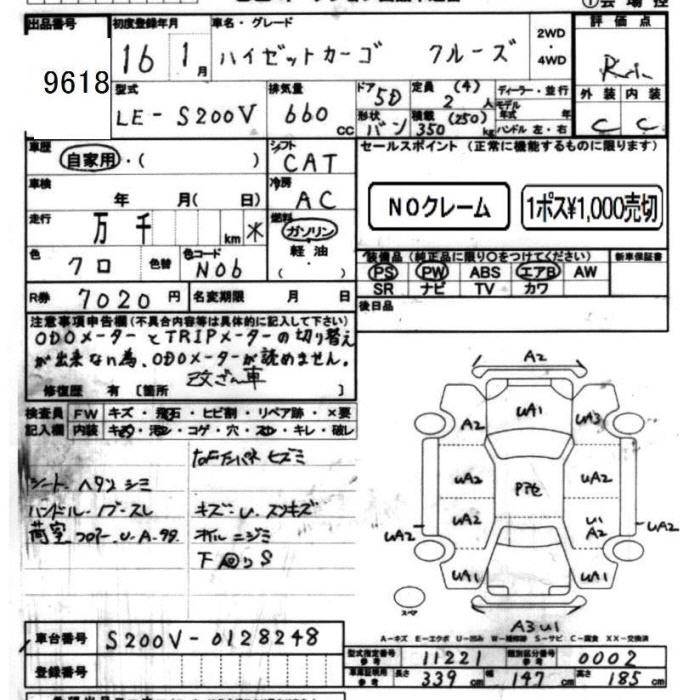 出品番号 初度登録年月 車名・グレード 2WD ・ 4WD 評価点
9618
16 1月 ハイゼットカーゴ クルーズ
型式 排気量 ドア 5D 定員 (4) 2人 ディーラー・並行 外装 内装
LE-S200V 660 CC 形状 バン 積載 (250) 350 kg モデル年式 年 ハンドル 左・右 C C
車歴 自家用・( ) シフト CAT セールスポイント (正常に機能するものに限ります)
車検 年 月( 日) 冷房 AC NOクレーム 1ポス¥1,000売切
走行 万 千 km 燃料 ガソリン・軽油
色 クロ 色替 色コード N06 装備品(純正品に限り○をつけてください) 新車保証書
PS PW ABS エアB AW
SR ナビ TV カワ
R券 7020円 名変期限 月 日 後日品
注意事項申告欄(不具合内容等は具体的に記入して下さい)
ODOメーターとTRIPメーターの切り替え
が出来ない為、ODOメーターが読めません。
改ざん車
修復歴 有 [箇所 ]
検査員 FW キズ・飛石・ヒビ割・リペア跡・×要
記入欄 内装 キズ・汚・コゲ・穴・スレ・キレ・破レ
シート ヘタリ シミ
ハンドル スレ キズ・U・
荷室 フロアー U・A オイルニジミ
下回りS
A2
A2 UA1 UA3
UA2 UA2
UA2 UA2 A2 UA2
UA1 UA1
スペア
A3U1
A-キズ E-エクボ U-凹み W-補修跡 S-サビ C-腐食 XX-交換済
車台番号 S200V-0128248 型式指定番号 参考 11221 類別区分番号 参考 0002
登録番号 車庫証明用 参考 長さ 339 cm 幅 147 cm 高さ 185 cm